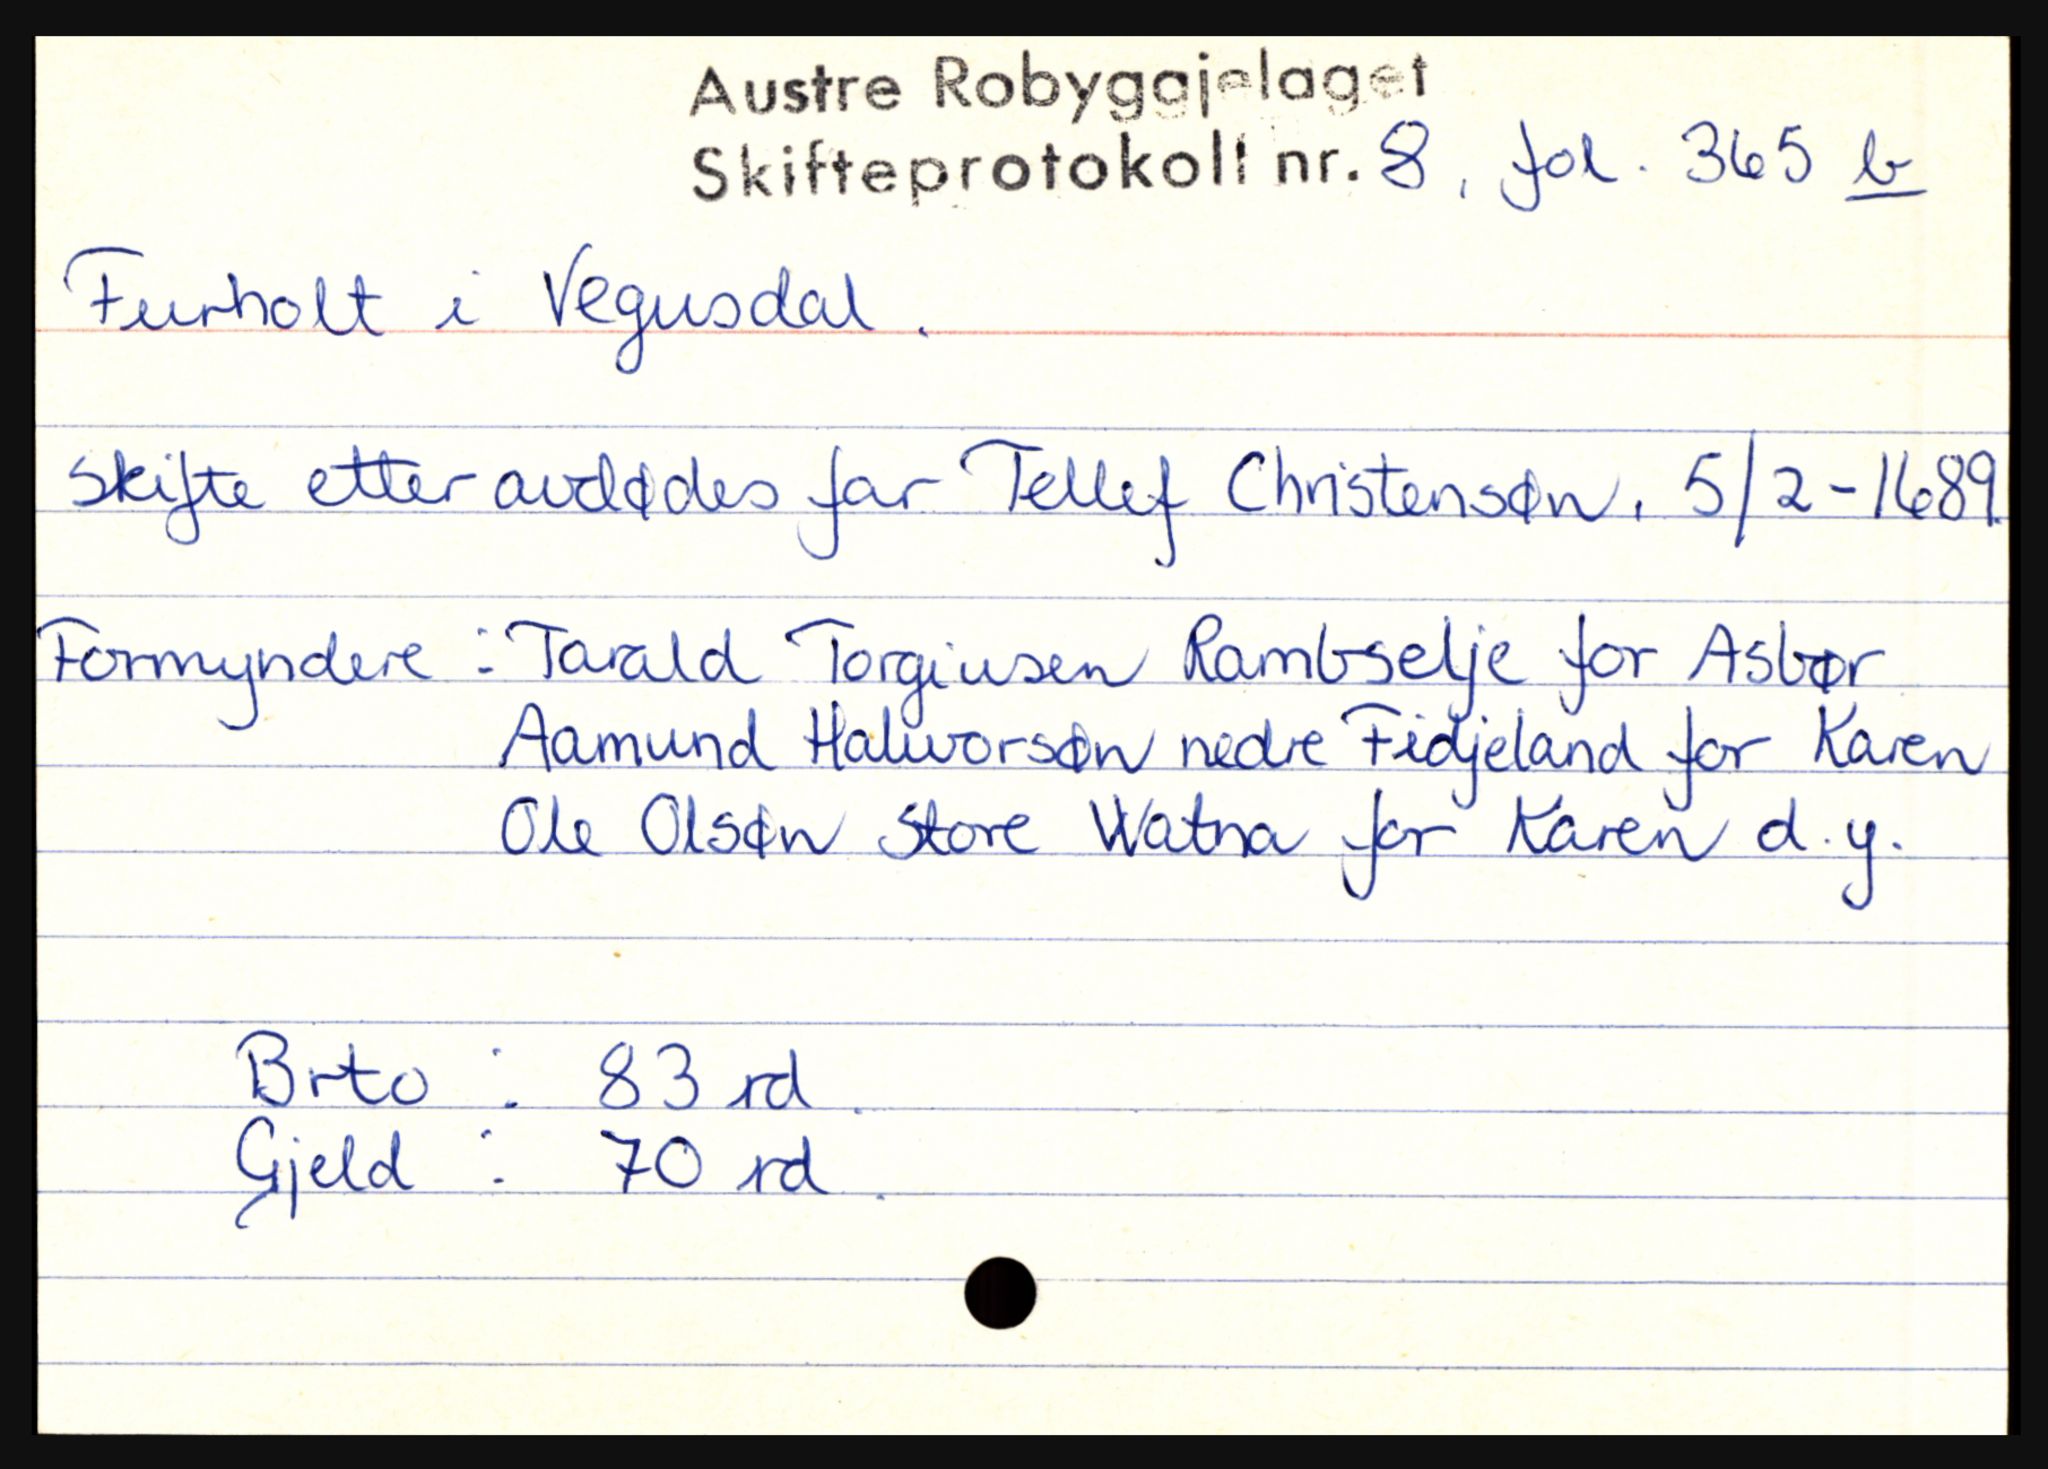 Austre Robyggjelaget
Skifteprotokoll nr. 8, fol. 365 b
Furholt i Vegusdal.
Skifte etter avdødes far Tellef Christensøn, 5/2-1689.
Formyndere : Tarald Torgiusen Rambselje for Asbør
Aamund Halworsøn nedre Fidjeland for Karen
Ole Olsøn Store Watna for Karen d.y.
Brto : 83 rd.
Gjeld : 70 rd.